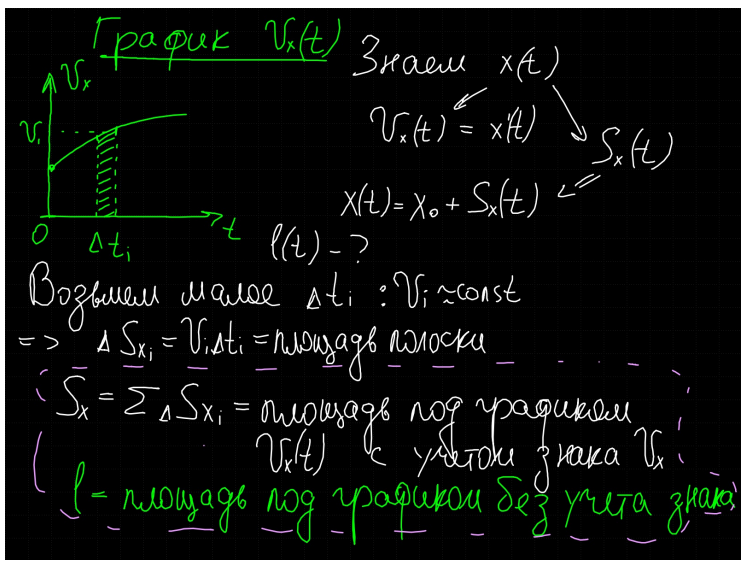 График Vₓ(t)
Знаем x(t)
Vₓ
Vᵢ
Vₓ(t) = x'(t)
Sₓ(t)
x(t) = x₀ + Sₓ(t)
0
Δtᵢ
t
l(t) - ?
Возьмем малое Δtᵢ : Vᵢ ≈ const
=> ΔSₓᵢ = VᵢΔtᵢ = площадь полоски
Sₓ = ΣΔSₓᵢ = площадь под графиком
Vₓ(t) с учетом знака Vₓ
l = площадь под графиком без учета знака